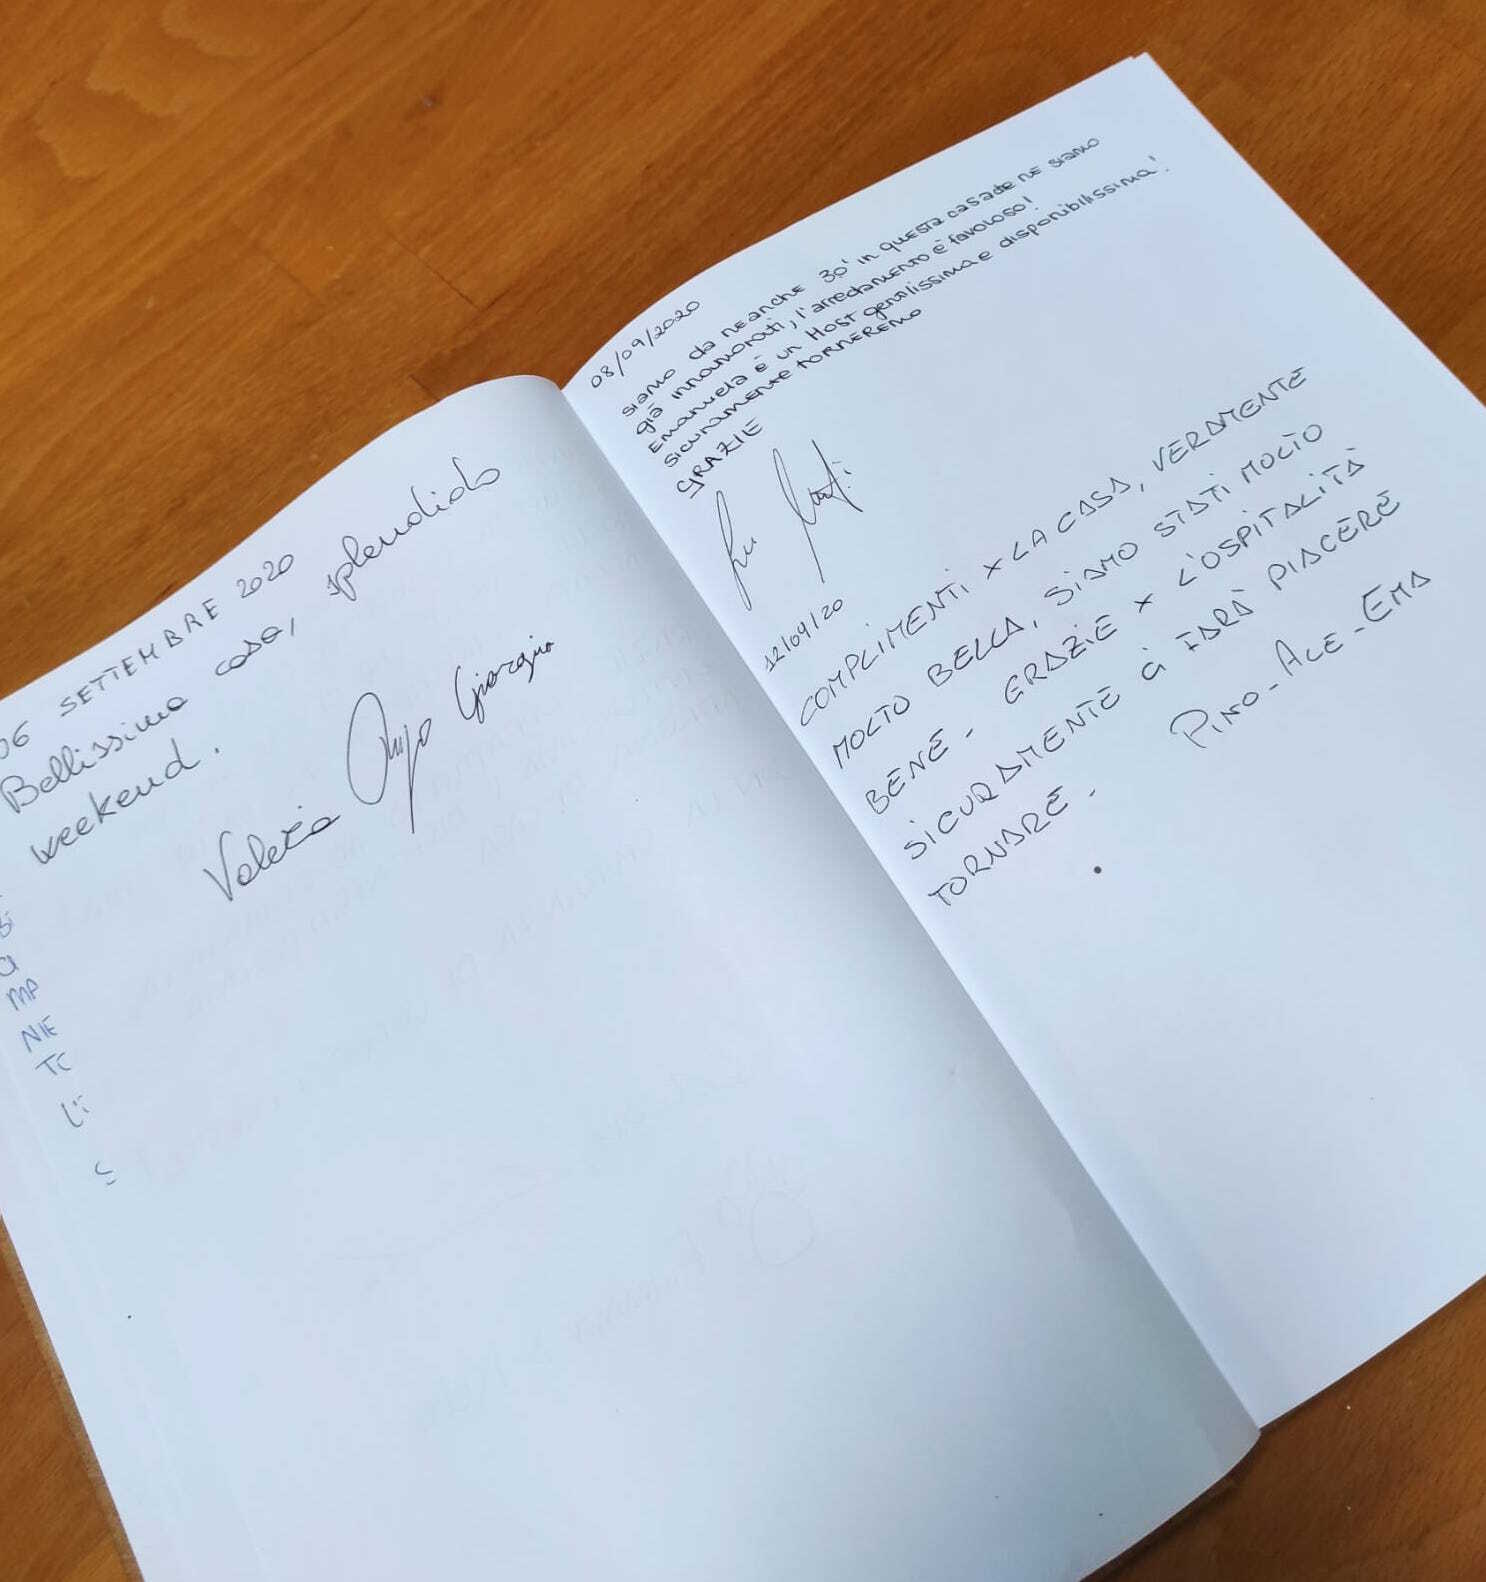 06 SETTEMBRE 2020
Bellissima casa, splendido
weekend.
Valeria Giorgia
Bi
MP
NE
TC
L'i
08/09/2020
siamo da neanche 30' in questa casa de ne siamo
già innamorati, l'arredamento è favoloso!
Emanuela è un Host gentilissima e disponibilissima!
sicuramente torneremo
GRAZIE
12/09/20
COMPLIMENTI x LA CASA, VERAMENTE
MOLTO BELLA, SIAMO STATI MOLTO
BENE - GRAZIE x L'OSPITALITÀ
SICURAMENTE CI FARÀ PIACERE
TORNARE -
PINO - ALE - EMA